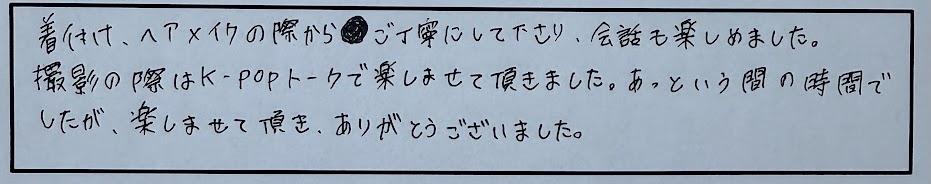 着付け、ヘアメイクの際からご丁寧にして下さり、会話も楽しめました。
撮影の際はK-POPトークで楽しませて頂きました。あっという間の時間で
したが、楽しませて頂き、ありがとうございました。